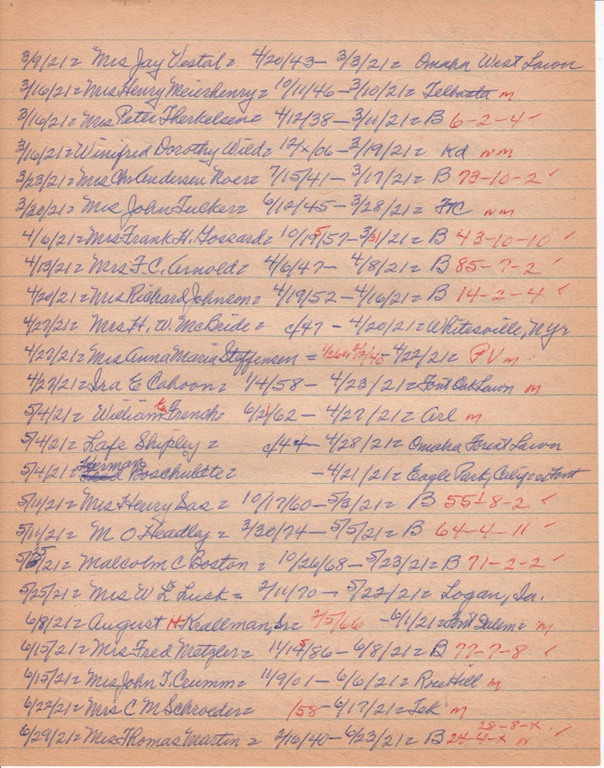 3/9/21= Mrs Jay Vestal= 4/20/43- 3/3/21= Omaha West Lawn
3/16/21= Mrs Henry Meierhenry= 10/11/46 - 3/10/21= m
3/16/21= Mrs Peter Therkelsen= 4/12/38- 3/11/21= B 6-2-4 ✓
3/16/21= Winifred Dorothy Wild= 12/x/06- 3/19/21= Kd m
3/23/21= Mrs Chs Andersen Noer= 7/15/41- 3/17/21= B 73-10-2 ✓
3/30/21= Mrs John Tucker= 6/12/45- 3/28/21= HC m
4/6/21= Mrs Frank H. Gossard= 10/15/57- 3/31/21= B 43-10-10 ✓
4/13/21= Mrs F.C. Arnold= 4/6/47- 4/8/21= B 85-7-2 ✓
4/20/21= Mrs Richard Johnson= 4/19/52- 4/16/21= B 14-2-4 ✓
4/27/21= Mrs H. W. McBride= c/47 - 4/20/21= Whitesville, N.Y.
4/27/21= Mrs Anna Maria Steffensen = 4/22/21= PV m
4/27/21= Ira E Cahoon= 1/4/58- 4/23/21= Font Oak Lawn m
5/4/21= William French= 6/21/62 - 4/27/21= Arl m
5/4/21= Lafe Shipley= c/44 - 4/28/21= Omaha Forest Lawn
5/4/21= Herman Boschulte= -4/21/21= Eagle Park, Font
5/11/21= Mrs Henry Sas= 10/17/60- 5/3/21= B 55-8-2 ✓
5/11/21= M O Headley= 3/30/74- 5/5/21= B 64-4-11 ✓
5/25/21= Malcolm C Boston= 10/26/68- 5/23/21= B 71-2-2 ✓
5/25/21= Mrs W L Lusk= 2/11/70- 5/22/21= Logan, Ia.
6/8/21= August H Krallman, Sr= 2/5/66 - 6/1/21= Font Salem= m
6/15/21= Mrs Fred Metzler= 11/15/86- 6/8/21= B 77-7-8 ✓
6/15/21= Mrs John T. Crumm= 11/9/01- 6/6/21= Rose Hill m
6/22/21= Mrs C M Schroeder= /58- 6/17/21= Tek m
28-8-x
6/29/21= Mrs Thomas Martin= 2/16/40- 6/23/21= B 24-4-x